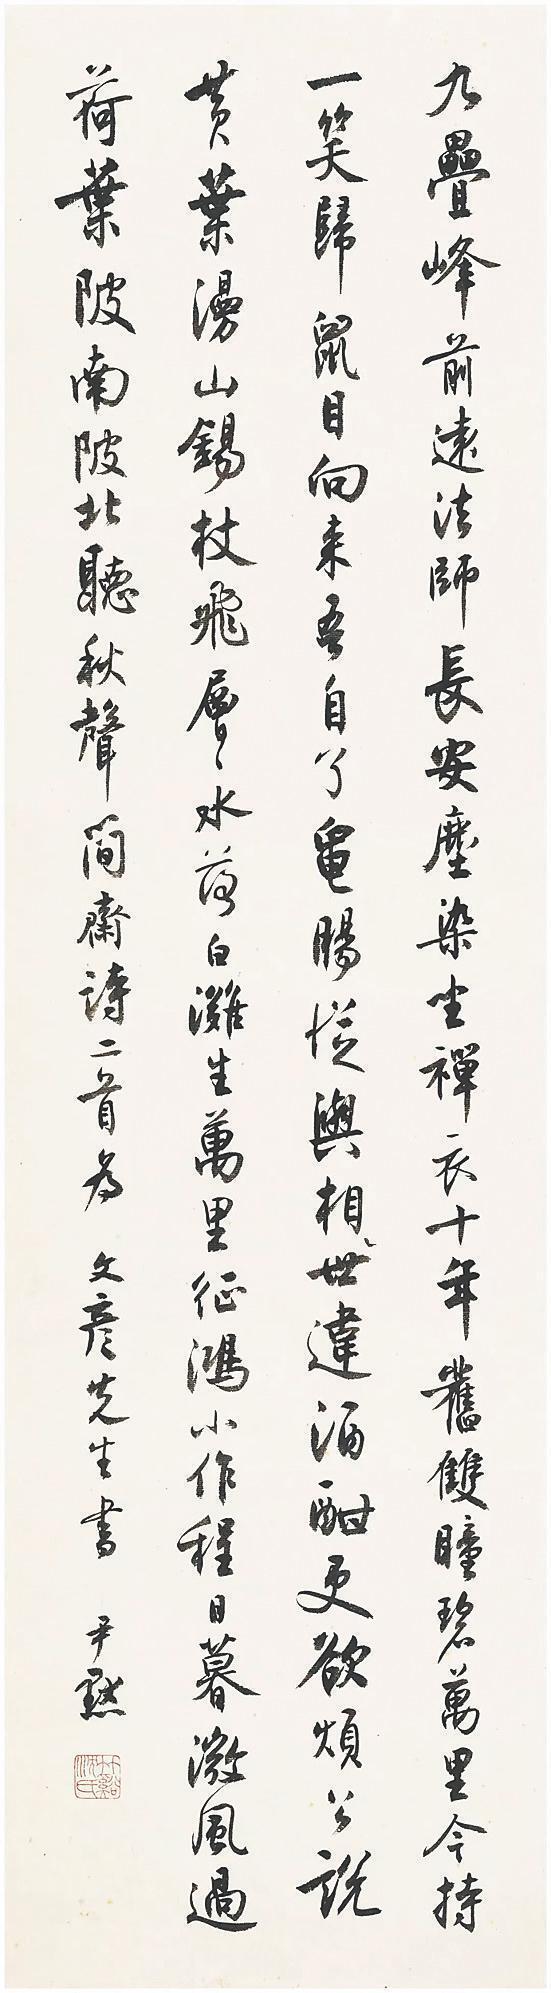 九疊峰前遠法師長安塵染坐禪衣十年舊雙瞳碧萬里今持
一笑歸鼠目向來吾自了龜腸從與相世違酒酣更欲煩公說
黃葉漫山錫杖飛層層水落白灘生萬里征鴻小作程日暮微風過
荷葉陂南陂北聽秋聲簡齋詩二首為 文彥先生書 尹默
竹谿沈氏